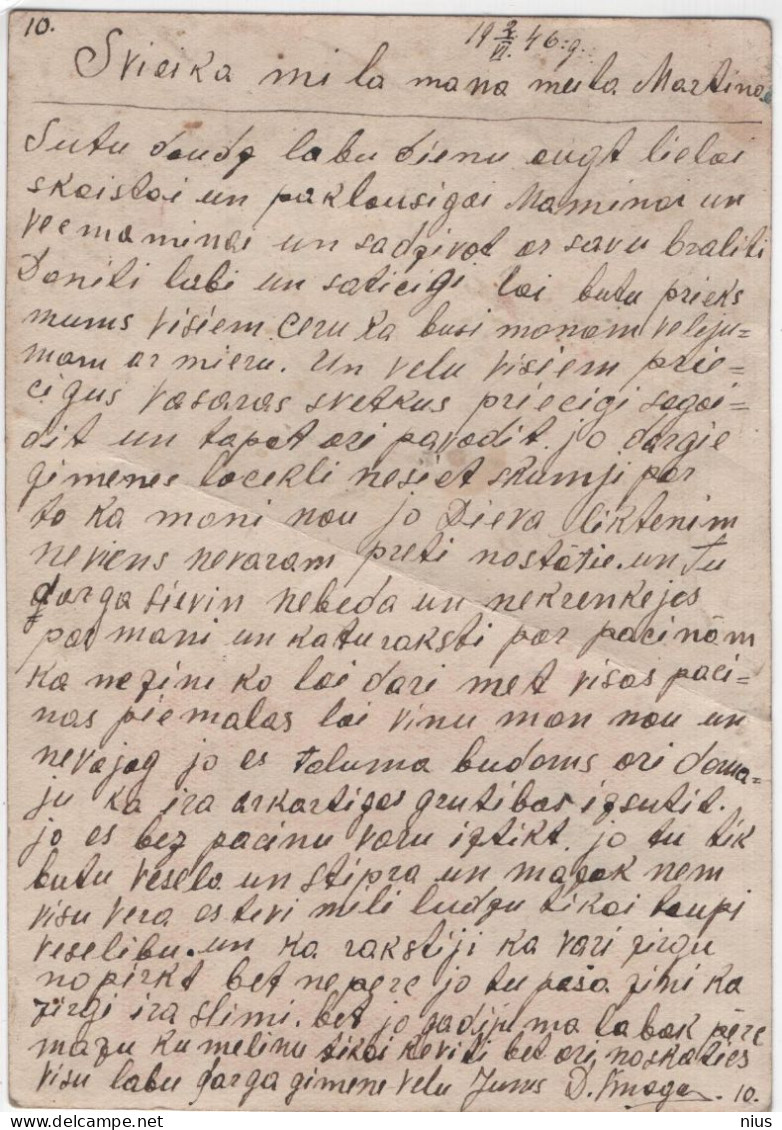 10.
19 2/VI. 46.g.
Svieika mi la mana meita Martina
Sutu daudz labu dienu augt lielai
skaistai un paklausigai Maminai un
veemaminai un sadzivot ar savu braliti
Daniti labi un saticigi lai butu prieks
mums visiem ceru ka busi manam veleju=
mam ar mieru. Un velu visiem prie=
cigus vasaras svetkus priecigi sagai=
dit un tapat ari pavadit. jo dargie
gimenes locekli nesiet skumji par
to ka mani nau jo Dieva liktenim
neviens nevaram preti nostatie. un Tu
darga sievin nebeda un nekrenkejos
par mani un ka tu raksti par pacinam
ka nezini ko lai dari met visas paci=
nas pie malas lai vinu man nau un
nevajag jo es taluma budams ari doma=
ju ka ira arkartigas grutibas izsutit.
jo es bez pacinu varu iztikt. jo tu tik
butu vesela un stipra un mazak nem
visu vera es tevi mili ludzu tikai taupi
veselibu. un ka rakstiji ka vari zirgu
nopirkt bet nepere jo tu pasa zini ka
zirgi ira slimi. bet jo gadijuma labak pere
mazu kumelinu tikai keviti bet ari noskaties
visu labu darga gimene velu Jums D. 10.
nius